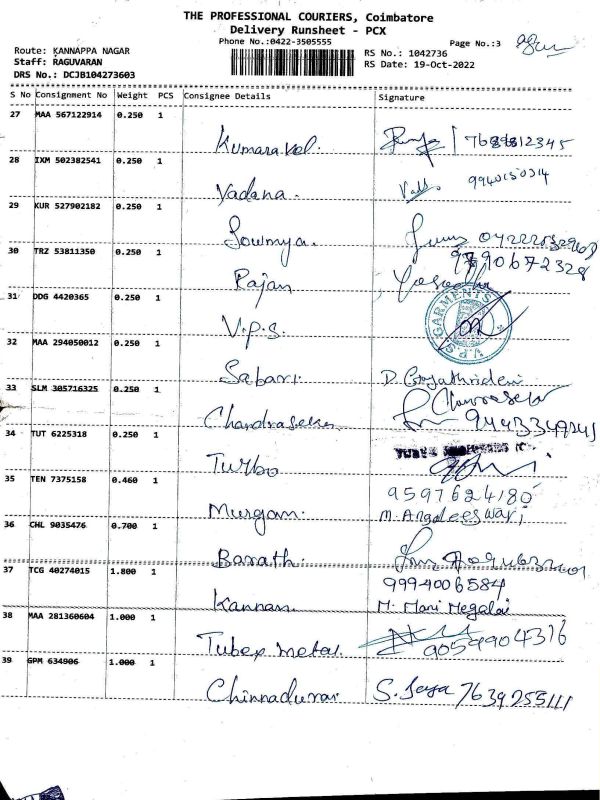 THE PROFESSIONAL COURIERS, Coimbatore
Delivery Runsheet - PCX
Phone No.:0422-3505555
Page No.:3
Route: KANNAPPA NAGAR
RS No.: 1042736
Staff: RAGUVARAN
RS Date: 19-Oct-2022
DRS No.: DCJB104273603
S No Consignment No Weight PCS Consignee Details Signature
27 MAA 567122914 0.250 1
Kumaravel
28 IXM 502382541 0.250 1
Vadana. 9940150314
29 KUR 527902182 0.250 1
Sowmya.
30 TRZ 53811350 0.250 1
9790672328
Rajan Yasodha
31 DDG 4420365 0.250 1
V.P.S. GARMENTS V.P.S
32 MAA 294050012 0.250 1
Sabari D. Gayathridevi
33 SLM 305716325 0.250 1
Chandrasekar 9443349241
34 TUT 6225318 0.250 1
Turbo
35 TEN 7375158 0.460 1
9597624180
Murgan. M. Angaleeswari
36 CHL 9035476 0.700 1
Barath.
37 TCG 40274015 1.800 1
9994006584
Kannan. M. Mani Megalai
38 MAA 281360604 1.000 1
Tubex metal. 9054904316
39 GPM 634906 1.000 1
Chinnadurai S. Jaya 7639255111